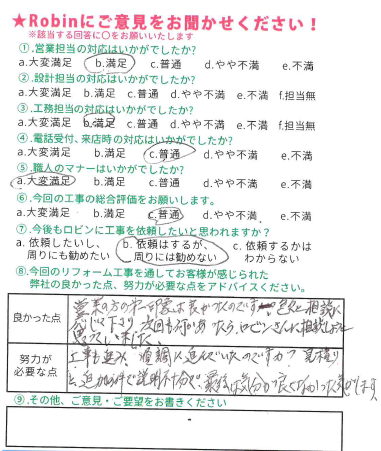 ★Robinにご意見をお聞かせください！
※該当する回答に〇をお願いいたします
①.営業担当の対応はいかがでしたか?
a.大変満足 b.満足 c.普通 d.やや不満 e.不満
②.設計担当の対応はいかがでしたか?
a.大変満足 b.満足 c.普通 d.やや不満 e.不満 f.担当無
③.工務担当の対応はいかがでしたか?
a.大変満足 b.満足 c.普通 d.やや不満 e.不満 f.担当無
④.電話受付、来店時の対応はいかがでしたか?
a.大変満足 b.満足 c.普通 d.やや不満 e.不満
⑤.職人のマナーはいかがでしたか?
a.大変満足 b.満足 c.普通 d.やや不満 e.不満
⑥.今回の工事の総合評価をお願いします。
a.大変満足 b.満足 c.普通 d.やや不満 e.不満
⑦.今後もロビンに工事を依頼したいと思われますか?
a. 依頼したいし、 b. 依頼はするが、 c. 依頼するかは
周りにも勧めたい 周りには勧めない わからない
⑧.今回のリフォーム工事を通してお客様が感じられた
弊社の良かった点、努力が必要な点をアドバイスください。
良かった点
営業の方の第一印象は良かったのです 色々と相談に
応じて下さり 次回も何かあったら、ロビンさんに相談しようと
思っていました。
努力が
必要な点
工事も進み 順調に進んでいたのですが? 見積り
と、追加の件で説明不十分で、最後は気分が良くなかった気がします
⑨.その他、ご意見・ご要望をお書きください